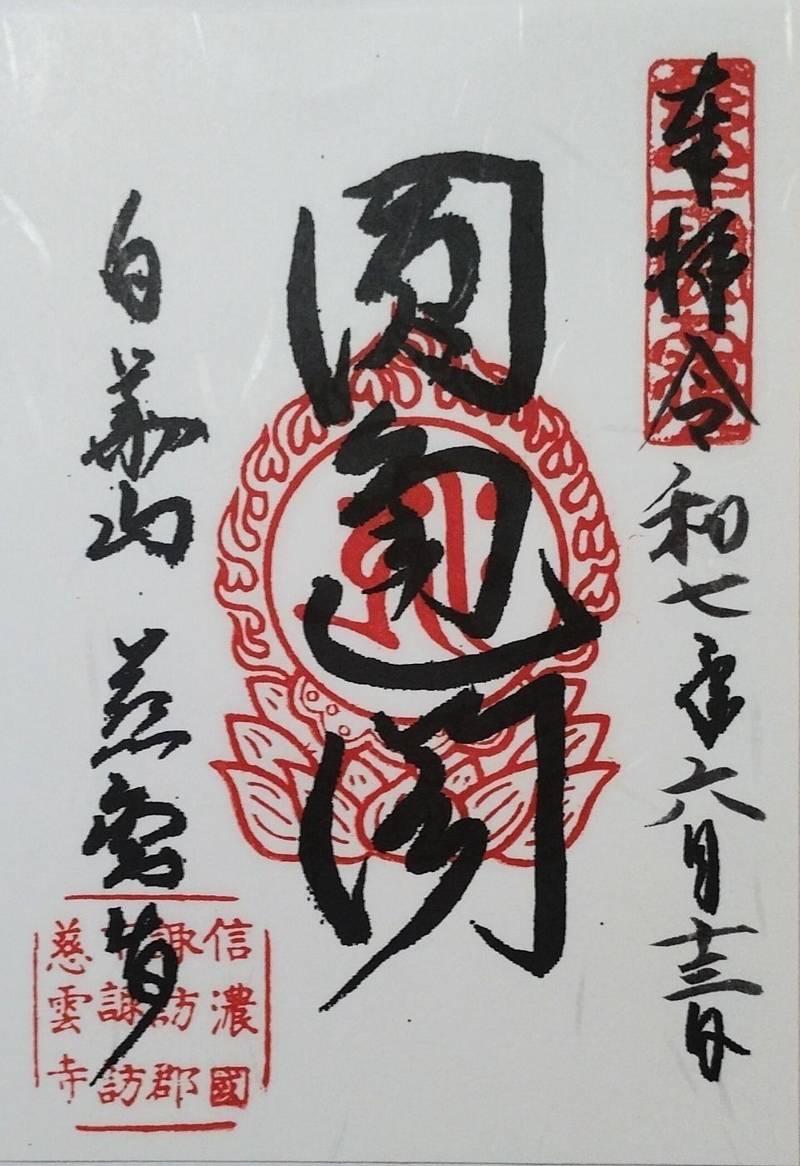 奉拝 令和七年六月十三日
圓通閣
白華山 慈雲寺
信濃國
諏訪郡
下諏訪
慈雲寺